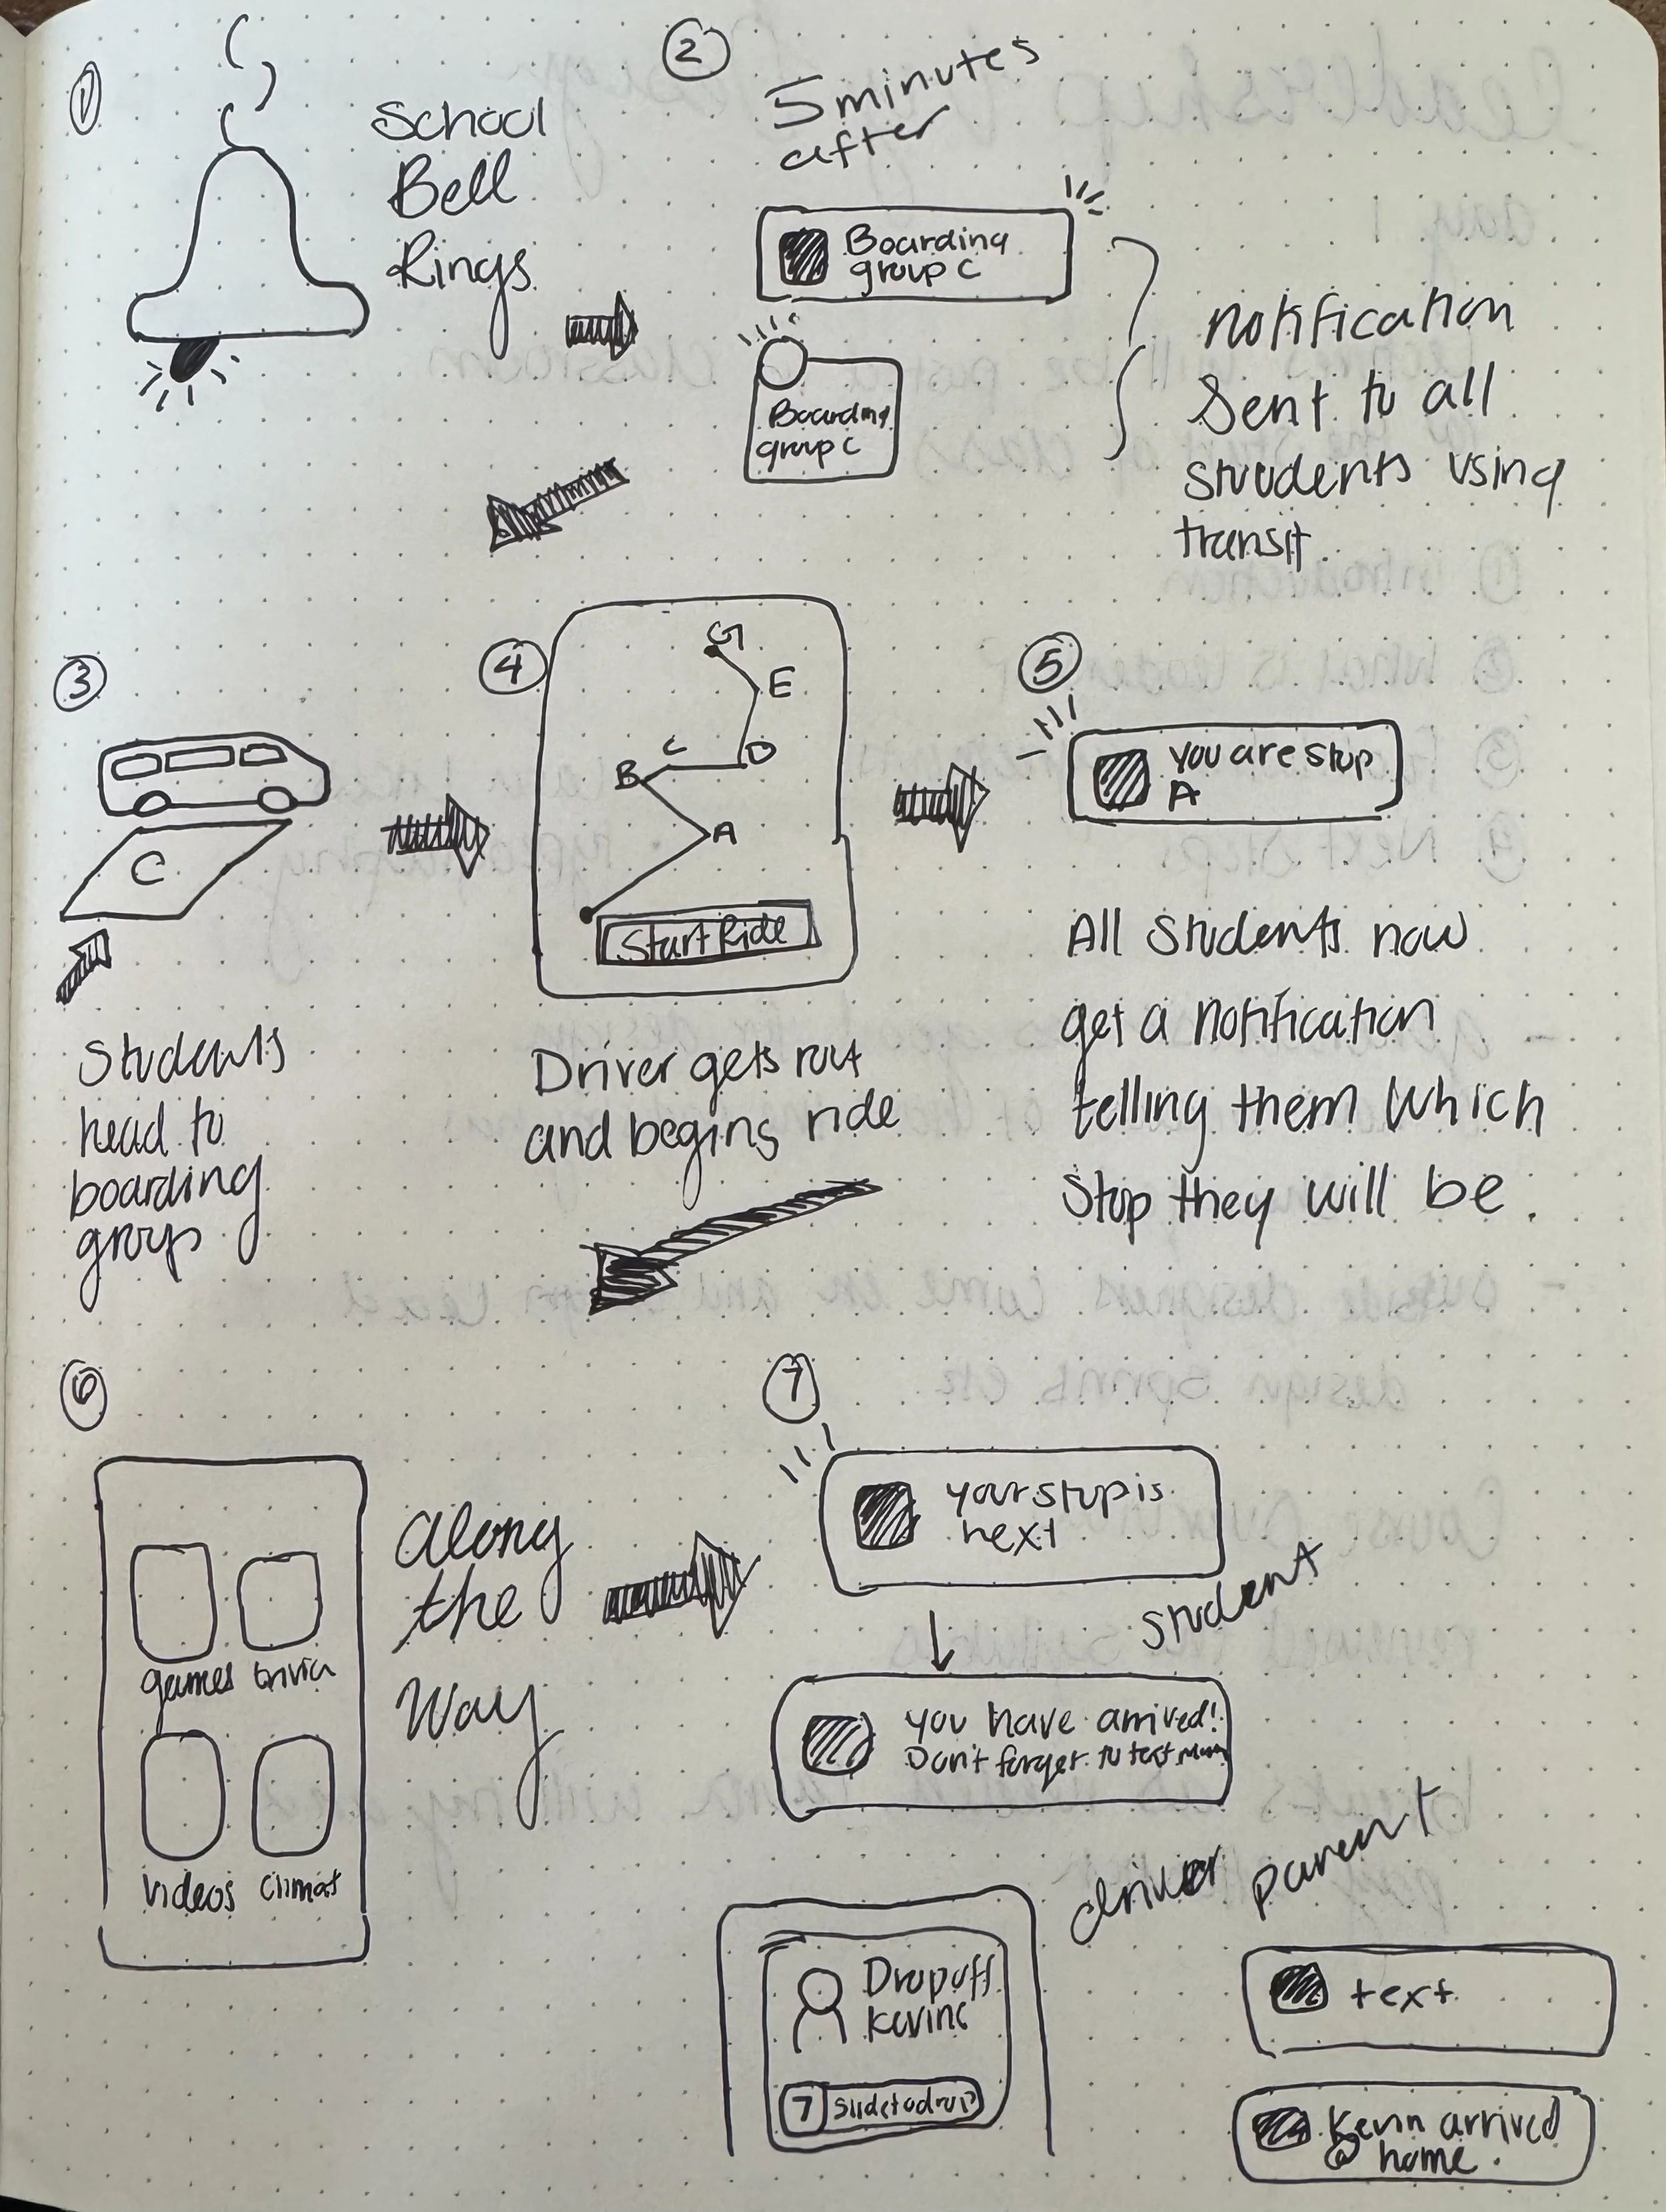 1
School
Bell
Rings
2
5 minutes
after
Boarding
group C
Boarding
group C
notification
Sent to all
students using
transit.
3
C
Students
head to
boarding
group
4
G
E
D
C
B
A
Start Ride
Driver gets rout
and begins ride
5
you are stop
A
All students now
get a notification
telling them which
stop they will be.
6
games trivia
videos climat
along
the
way
7
your stop is
next
student
you have arrived!
Don't forget to text mom
driver
Dropoff
Kevin C
7 slide to drop
parent
text
Kevin arrived
@ home.